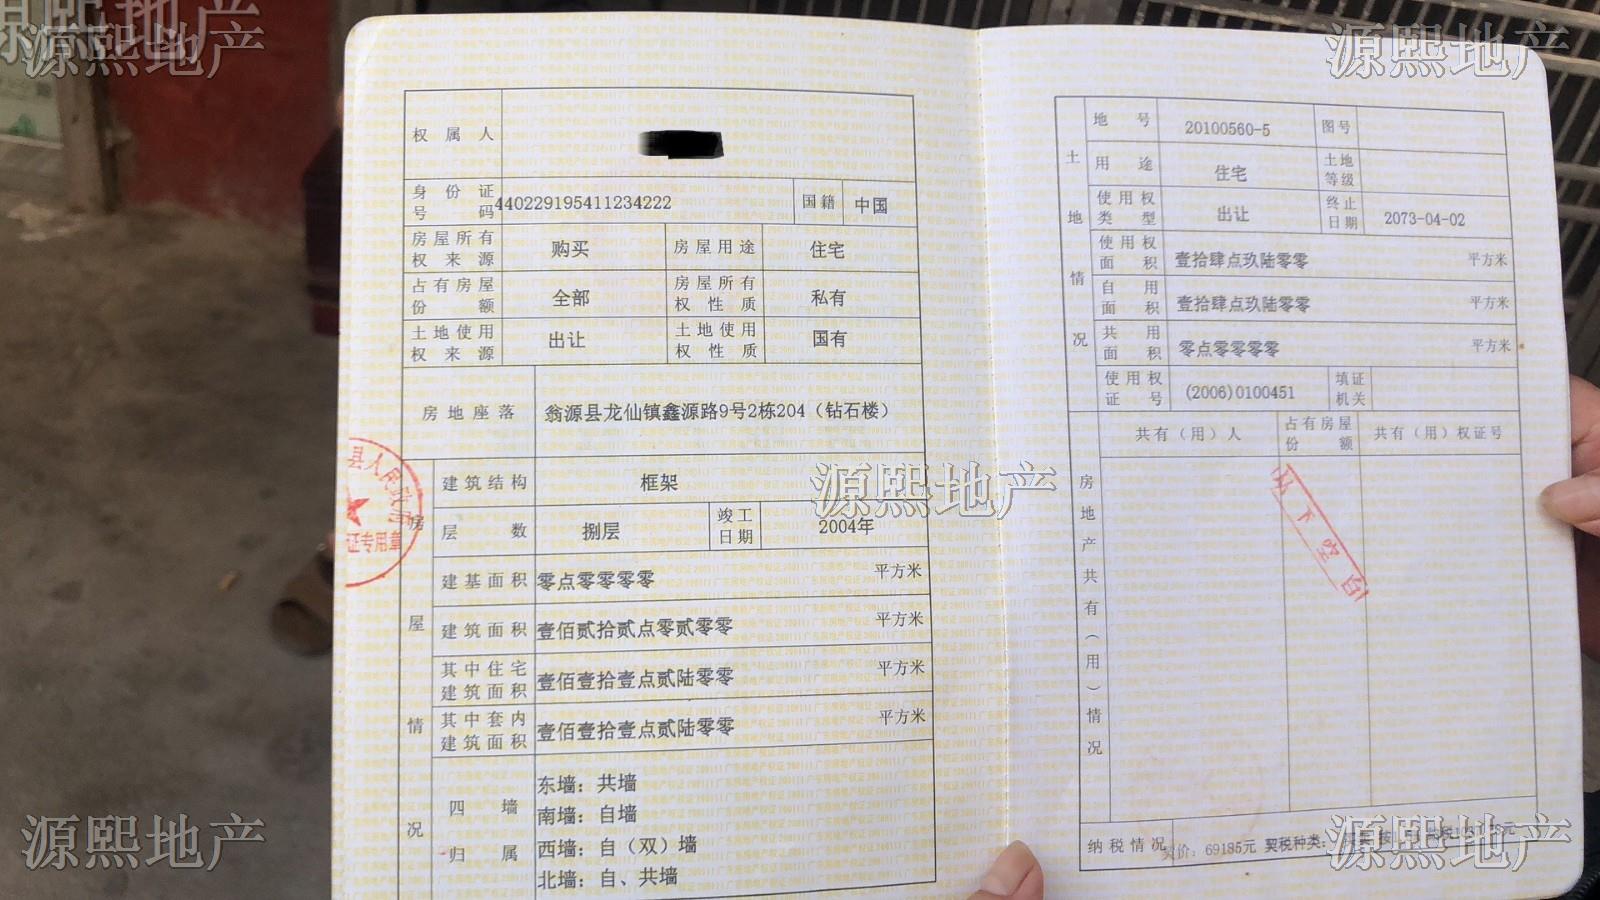 源熙地产
源熙地产
权属人
身份证号码 440229195411234222 国籍 中国
房屋所有权来源 购买 房屋用途 住宅
占有房屋份额 全部 房屋所有权性质 私有
土地使用权来源 出让 土地使用权性质 国有
房地座落 翁源县龙仙镇鑫源路9号2栋204（钻石楼）
房屋情况
建筑结构 框架
层数 捌层 竣工日期 2004年
建基面积 零点零零零零 平方米
建筑面积 壹佰贰拾贰点零贰零零 平方米
其中住宅建筑面积 壹佰壹拾壹点贰陆零零 平方米
其中套内建筑面积 壹佰壹拾壹点贰陆零零 平方米
四墙归属
东墙：共墙
南墙：自墙
西墙：自（双）墙
北墙：自、共墙
县人民政
证专用章
土地情况
地号 20100560-5 图号
用途 住宅 土地等级
使用权类型 出让 终止日期 2073-04-02
使用权面积 壹拾肆点玖陆零零 平方米
自用面积 壹拾肆点玖陆零零 平方米
共用面积 零点零零零零 平方米
使用权证号 (2006)0100451 填证机关
房地产共有（用）情况
共有（用）人 占有房屋份额 共有（用）权证号
以下空白
纳税情况 契价：69185元 契税种类：
源熙地产
源熙地产
源熙地产